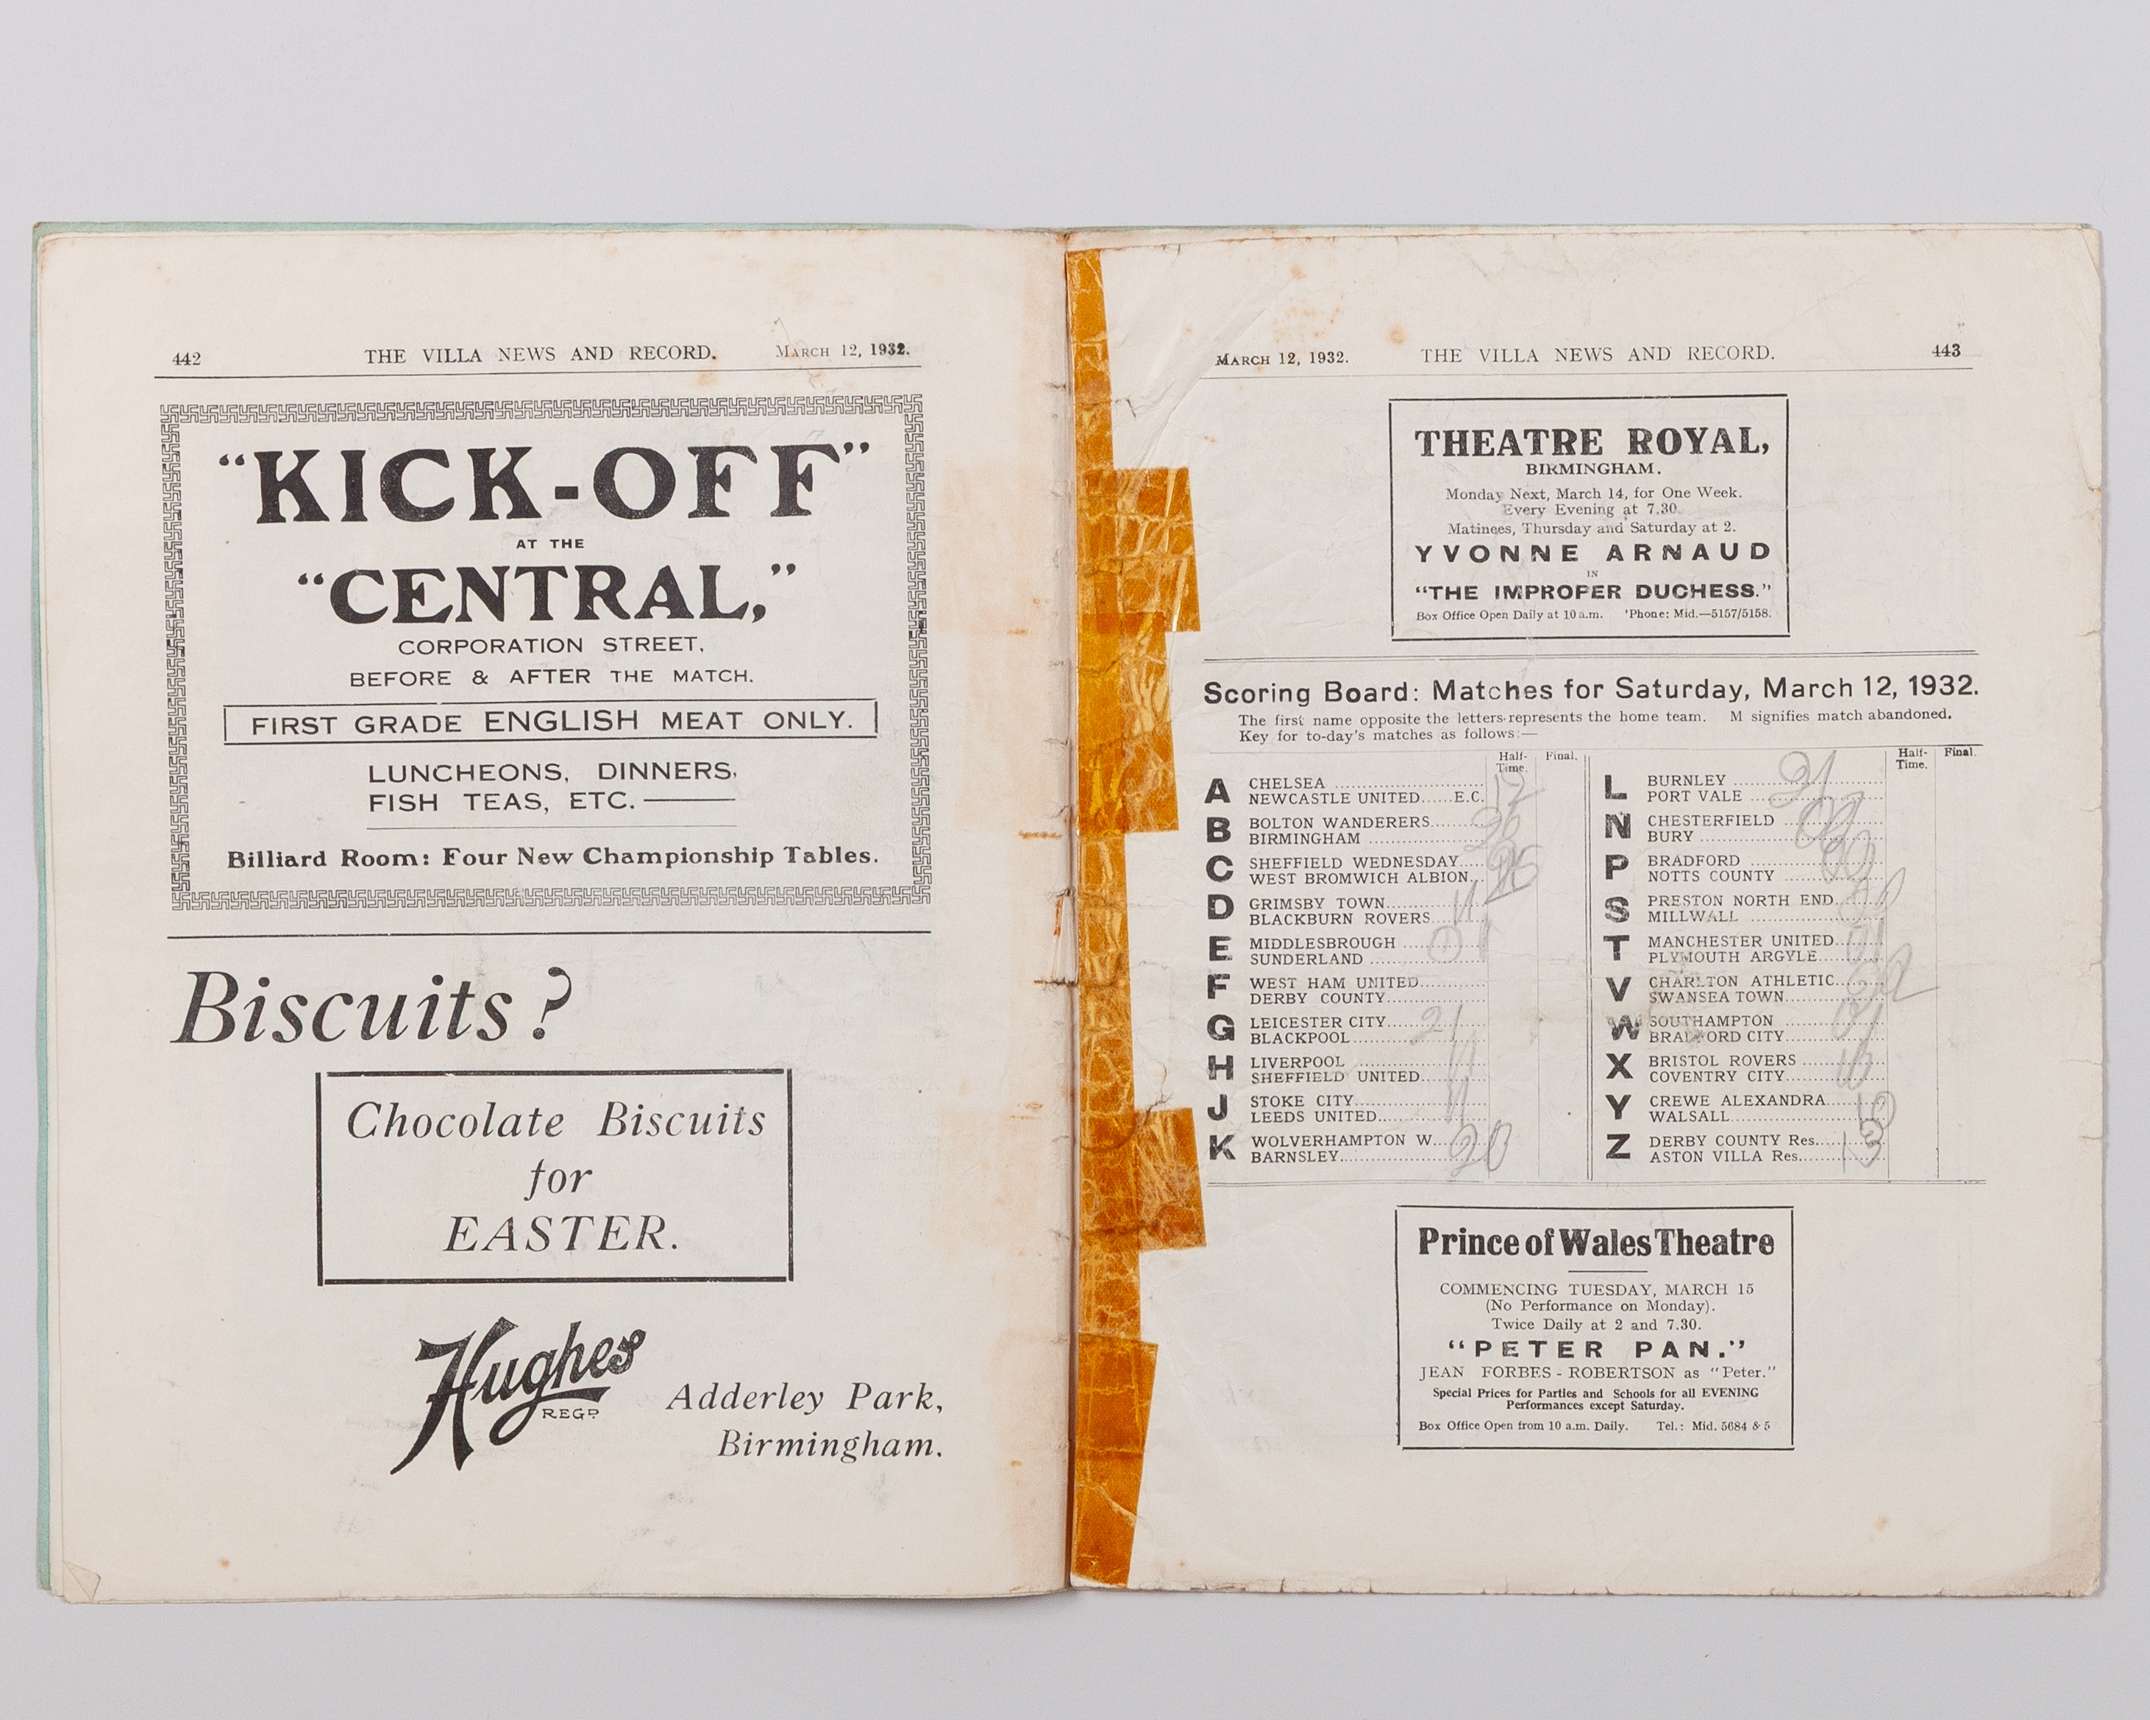 442 THE VILLA NEWS AND RECORD. MARCH 12, 1932.
"KICK-OFF"
AT THE
"CENTRAL,"
CORPORATION STREET,
BEFORE & AFTER THE MATCH.
FIRST GRADE ENGLISH MEAT ONLY.
LUNCHEONS, DINNERS,
FISH TEAS, ETC.
Billiard Room: Four New Championship Tables.
Biscuits?
Chocolate Biscuits
for
EASTER.
Hughes
REGD
Adderley Park,
Birmingham.
MARCH 12, 1932. THE VILLA NEWS AND RECORD. 443
THEATRE ROYAL,
BIRMINGHAM.
Monday Next, March 14, for One Week.
Every Evening at 7.30
Matinees, Thursday and Saturday at 2.
YVONNE ARNAUD
IN
"THE IMPROPER DUCHESS."
Box Office Open Daily at 10 a.m. 'Phone: Mid.—5157/5158.
Scoring Board: Matches for Saturday, March 12, 1932.
The first name opposite the letters represents the home team. M signifies match abandoned.
Key for to-day's matches as follows:—
Half-Time. Final.
A CHELSEA
NEWCASTLE UNITED......E.C. 12
B BOLTON WANDERERS
BIRMINGHAM
C SHEFFIELD WEDNESDAY
WEST BROMWICH ALBION
D GRIMSBY TOWN 11
BLACKBURN ROVERS
E MIDDLESBROUGH 01
SUNDERLAND
F WEST HAM UNITED
DERBY COUNTY
G LEICESTER CITY 21
BLACKPOOL
H LIVERPOOL 11
SHEFFIELD UNITED
J STOKE CITY 11
LEEDS UNITED
K WOLVERHAMPTON W. 20
BARNSLEY
Half-Time. Final.
L BURNLEY 21
PORT VALE
N CHESTERFIELD
BURY
P BRADFORD
NOTTS COUNTY
S PRESTON NORTH END
MILLWALL
T MANCHESTER UNITED
PLYMOUTH ARGYLE
V CHARLTON ATHLETIC
SWANSEA TOWN
W SOUTHAMPTON 01
BRADFORD CITY
X BRISTOL ROVERS
COVENTRY CITY
Y CREWE ALEXANDRA 10
WALSALL
Z DERBY COUNTY Res. 13
ASTON VILLA Res.
Prince of Wales Theatre
COMMENCING TUESDAY, MARCH 15
(No Performance on Monday).
Twice Daily at 2 and 7.30.
"PETER PAN."
JEAN FORBES-ROBERTSON as "Peter."
Special Prices for Parties and Schools for all EVENING
Performances except Saturday.
Box Office Open from 10 a.m. Daily. Tel.: Mid. 5684 & 5